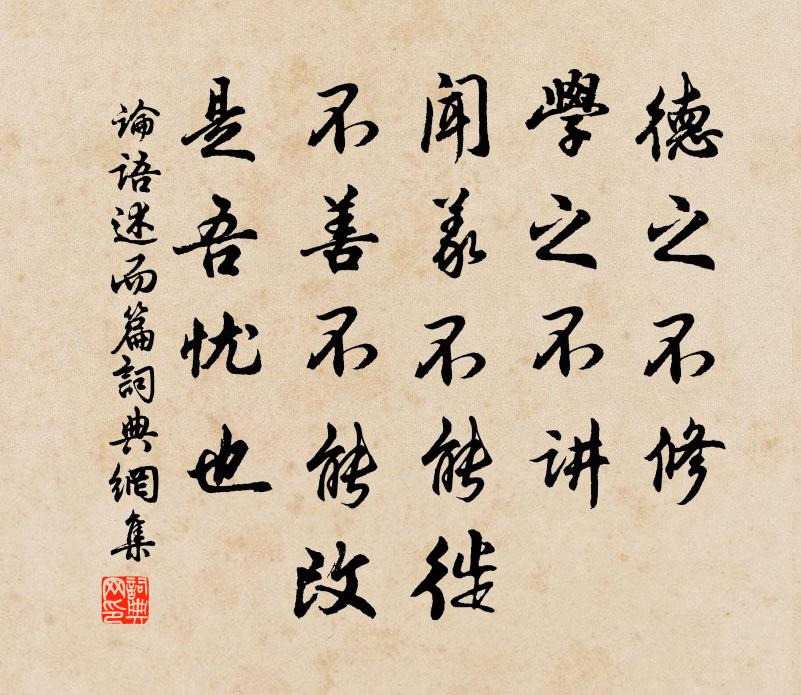 德之不修
學之不讲
聞義不能徙
不善不能改
是吾忧也
论语述而篇詞典網集
詞典网印